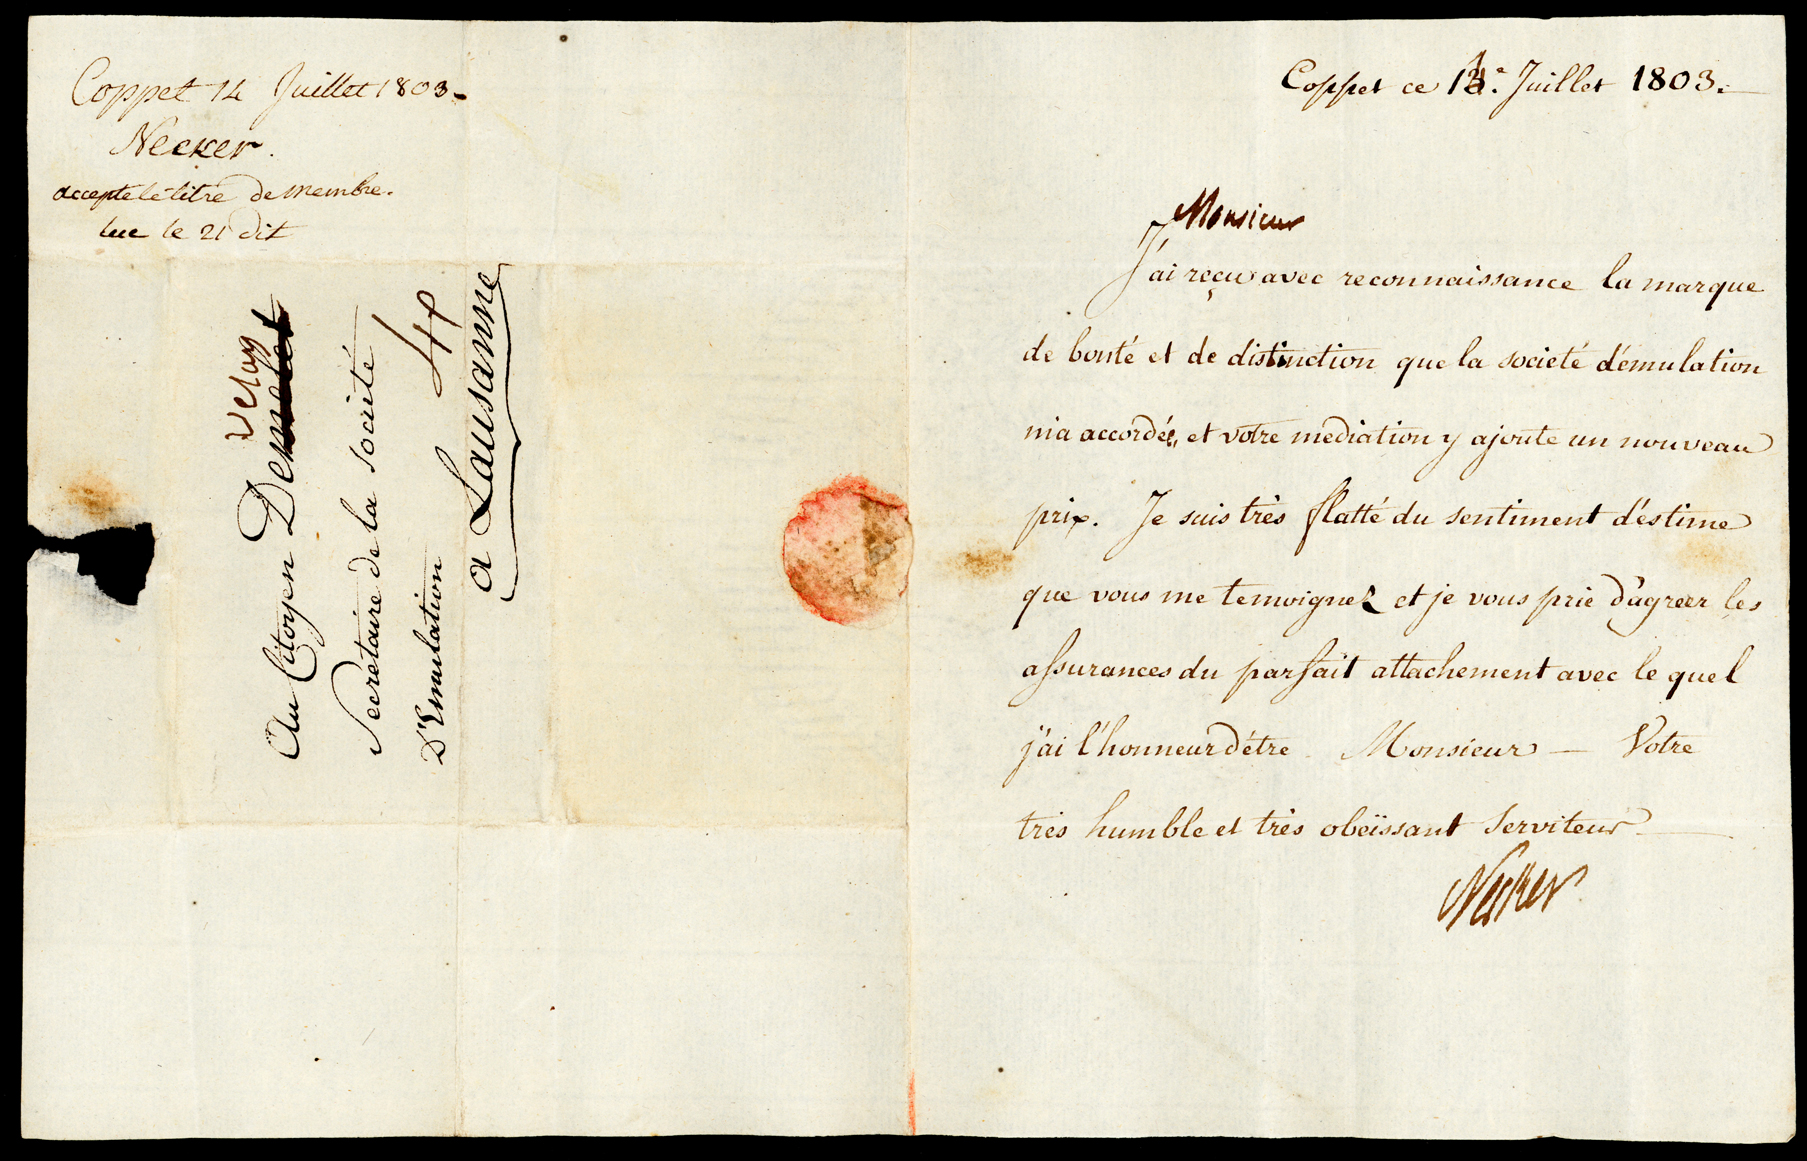 Coppet 14 Juillet 1803.
Necker.
accepte le titre de membre.
lue le 21 dit
Au Citoyen
Secretaire de la société
D'Emulation
4
a Lausanne
Coppet ce 14e. Juillet 1803.
Monsieur
J'ai reçu avec reconnaissance la marque
de bonté et de distinction que la societé d'émulation
m'a accordée, et votre mediation y ajoute un nouveau
prix. Je suis très flatté du sentiment d'estime
que vous me temoignez et je vous prie d'agreer les
assurances du parfait attachement avec le quel
j'ai l'honneur d'étre Monsieur — Votre
très humble et très obeïssant Serviteur
Necker